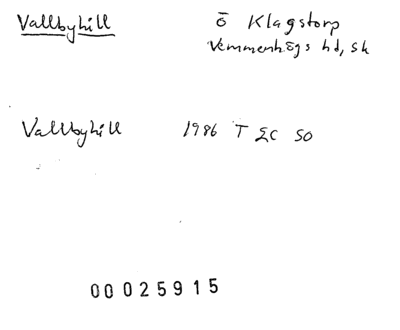 Vallbyhill
Ö Klagstorp
Vemmenhögs hd, Sk
Vallbyhill 1986 T ΣC SO
00025915